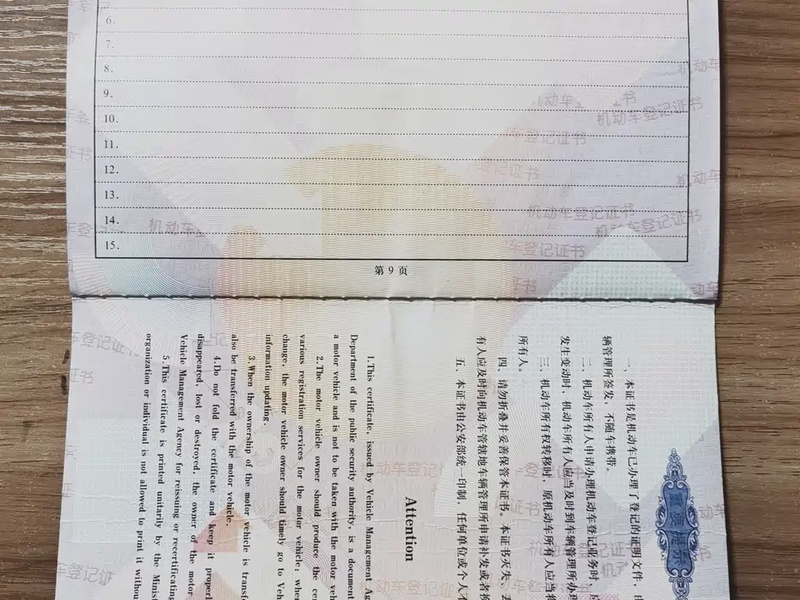 6.
7.
8.
9.
10.
11.
12.
13.
14.
15.
第 9 页
重要提示
一、本证书是机动车已办理了登记的证明文件，由
辆管理所签发，不随车携带。
二、机动车所有人申请办理机动车登记业务时，应
发生变动时，机动车所有人应当及时到车辆管理所办理
三、机动车所有权转移时，原机动车所有人应当将
所有人。
四、请勿折叠并妥善保管本证书。本证书灭失、丢
有人应及时向机动车管辖地车辆管理所申请补发或者换
五、本证书由公安部统一印制，任何单位或个人不
Attention
1.This certificate, issued by Vehicle Management
Department of the public security authority, is a document
a motor vehicle and is not to be taken with the motor
2.The motor vehicle owner should produce the
various registration services for the motor vehicle;
change, the motor vehicle owner should timely go to
information updating.
3.When the ownership of the motor vehicle is
also be transferred with the motor vehicle.
4.Do not fold the certificate and keep it
disappeared, lost or destroyed, the owner of the motor
Vehicle Management Agency for reissuing or recertificating
5.This certificate is printed unitarily by the
organization or individual is not allowed to print it
机动车登记证书
机动车登记证书
机动车登记证书